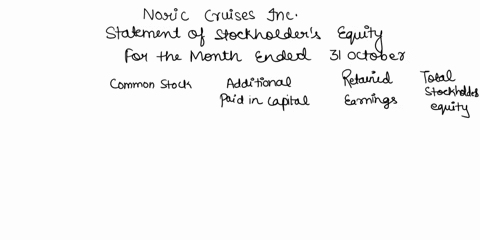 Noric Cruises Inc.
Statement of Stockholder's Equity
For the Month Ended 31 October
Common Stock Additional Paid in Capital Retained Earnings Total Stockholder equity